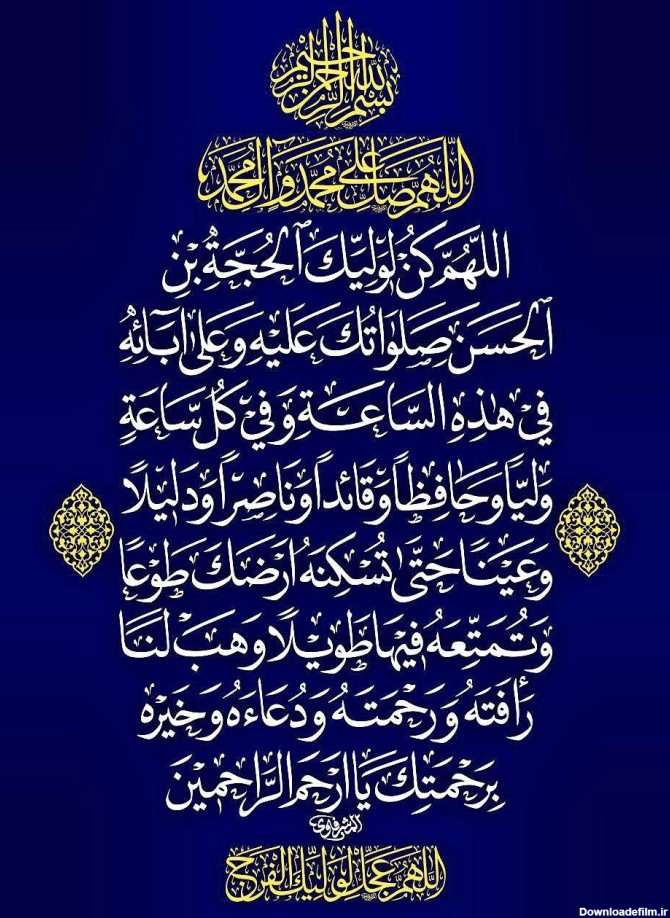 بِسْمِ اللهِ الرَّحْمٰنِ الرَّحِيمِ
اَللّٰهُمَّ صَلِّ عَلىٰ مُحَمَّدٍ وَآلِ مُحَمَّدٍ
اللهُمَّ كُنْ لِوَلِيِّكَ ٱلحُجَّةِ بْنِ
ٱلحَسَنِ صَلَوَاتُكَ عَلَيْهِ وَعَلىٰ آبَائِهِ
فِي هٰذِهِ السَّاعَةِ وَفِي كُلِّ سَاعَةٍ
وَلِيّاً وَحَافِظاً وَقَائِداً وَنَاصِراً وَدَلِيْلًا
وَعَيْنَاً حَتّىٰ تُسْكِنَهُ اَرْضَكَ طَوْعَاً
وَتُمَتِّعَهُ فِيهَا طَوِيْلًا وَهَبْ لَنَا
رَأفَتَهُ وَرَحْمَتَهُ وَدُعَاءَهُ وَخَيْرَهُ
بِرَحْمَتِكَ يَا اَرْحَمَ الرَّاحِمِيْنَ
الشرفاوي
اَللّٰهُمَّ عَجِّلْ لِوَلِيِّكَ الْفَرَجَ
Downloadefilm.ir